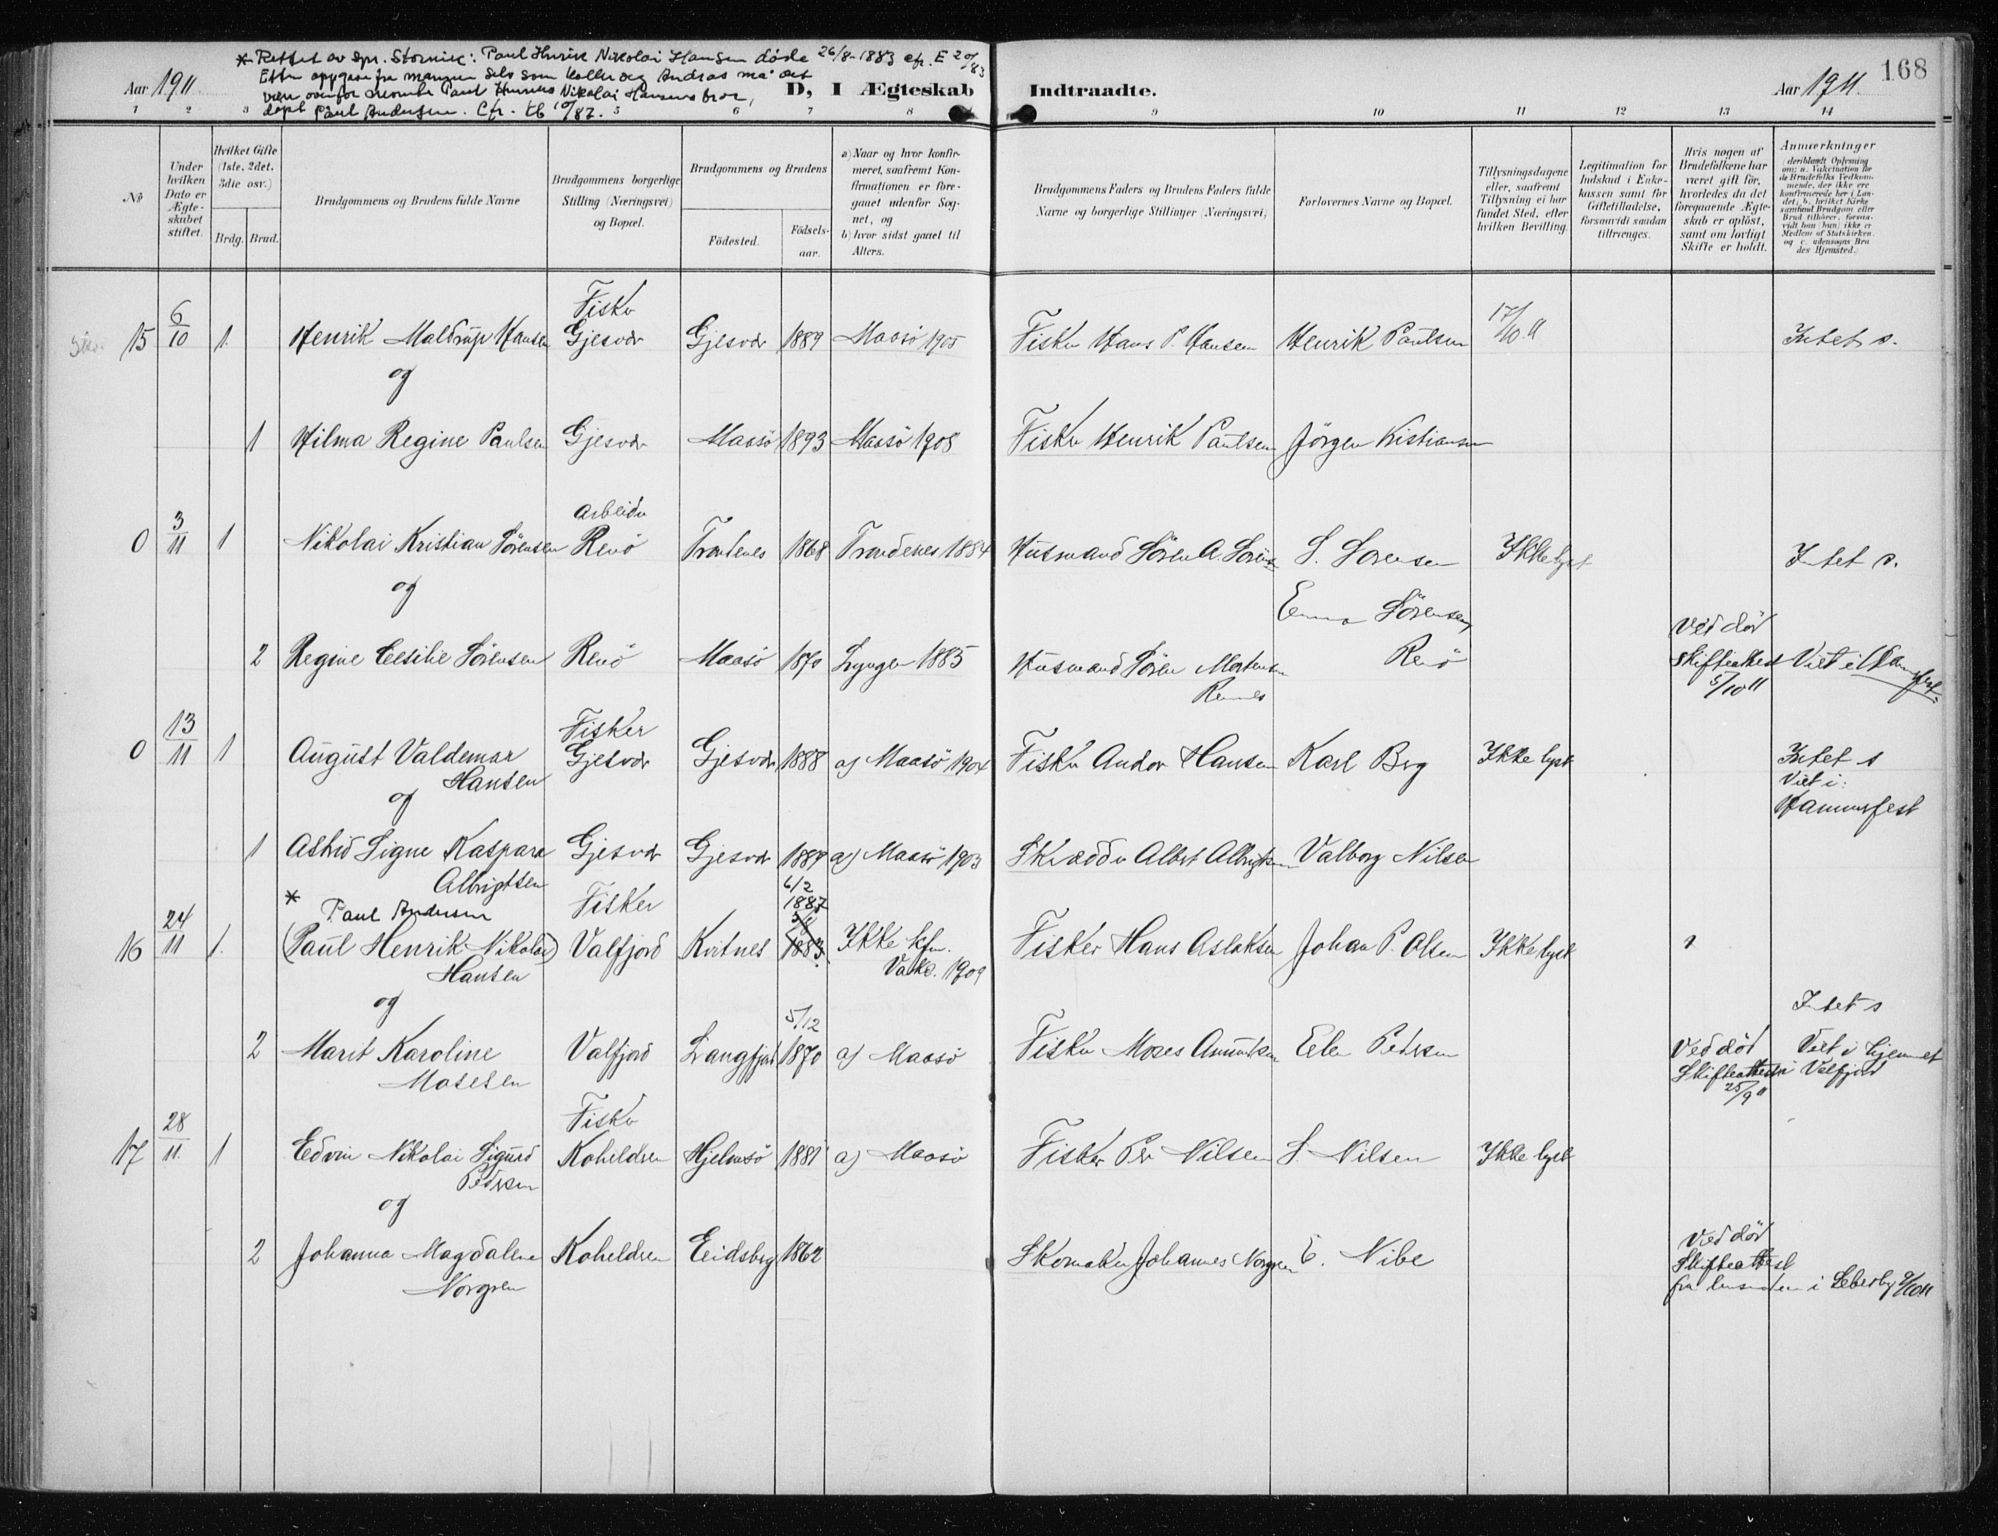 * Rettet av spr. Stornik: Paul Henrik Nikolai Hansen døde 26/8-1883 cfr. E 20/83
Etter oppgave fra mannen selv som kaller seg Andras må det
være ovenfor nevnte Paul Henriks Nikolai Hansens bror,
døpt Paul Andersen. Cfr. tb 10/87.
168
Aar 1911.
D, 1 Ægteskab
Indtraadte.
Aar 1911.
1 2 3 4 5 6 7 8 9 10 11 12 13 14
No
Under hvilken Dato er Ægteskabet stiftet.
Hvilket Gifte (1ste, 2det, 3die osv.)
Brdg. Brud.
Brudgommens og Brudens fulde Navne
Brudgommens borgerlige Stilling (Næringsvei) og Bopæl.
Brudgommens og Brudens
Fødested.
Fødselsaar.
a) Naar og hvor konfirmeret, saafremt Konfirmationen er foregaaet udenfor Sognet, og
b) hvor sidst gaaet til Alters.
Brudgommens Faders og Brudens Faders fulde Navne og borgerlige Stillinger (Næringsvei)
Forlovernes Navne og Bopæl.
Tillysningsdagene eller, saafremt Tillysning ei har fundet Sted, efter hvilken Bevilling.
Legitimation for Indskud i Enkekassen samt for Giftetilladelse, forsaavidt saadan tiltrænges.
Hvis nogen af Brudefolkene har været gift før, hvorledes da det foregaaende Ægteskab er opløst, samt om lovligt Skifte er holdt.
Anmærkninger
(deriblandt Oplysning om: a. Vakcination for de Brudefolks Vedkommende, der ikke ere konfirmerede her i Landet; b. hvilket Kirkesamfund Brudgom eller Brud tilhører, forsaavidt han (hun) ikke er Medlem af Statskirken, og c. udensogns Brudes Hjemsted.)
15 6/10 1. Henrik Maldrup Hansen Fisker Gjesvær Gjesvær 1889 Maasø 1905 Fisker Hans P. Hansen Henrik Paulsen 17/10 11 Intet s.
og
1 Hilma Regine Paulsen Gjesvær Maasø 1893 Maasø 1908 Fisker Henrik Paulsen Jörgen Kristiansen
0 3/11 1 Nikolai Kristian Sörensen Arbeider Revö Trondenes 1868 Trondenes 1884 Husmand Sören A. Sörens. S. Sorensen Ikke lyst Intet s.
og
Emma Sörensen
2 Regine Cesilie Sörensen Revö Maasö 1870 Lyngen 1885 Husmand Sören Mortensen Revö Ved död Skifteattest 5/10 11 Viet i Hammerfest
0 13/11 1 August Valdemar Hansen Fisker Gjesvær Gjesvær 1888 a) Maasö 1904 Fisker Andor Hansen Karl Berg Ikke lyst Intet s
Viet i:
Hammerfest
og
1 Astrid Signe Kaspara Albrigtsen Gjesvær Gjesvær 1889 a) Maasö 1903 Skrædder Albert Albrigtsen Valborg Nilsen
* Paul Andersen
6/2 1887
16 24/11 1. (Paul Henrik Nikolai) Hansen Fisker Valfjord Kvitnes 1883. Ikke kfm. Vakc. 1909 Fisker Hans Aslaksen Johan P. Olsen Ikke lyst
og
Intet s
2 Marit Karoline Mosesen Valfjord Langfjord 5/12 1870 a) Maasö Fisker Moses Amundsen Elen Pedersen Ved död Skifteattest 25/9 11 Viet i hjemmet i Valfjord
17 28/11. 1 Edvin Nikolai Sigurd Pedersen Fisker Koheldren Hjelmsö 1881 a) Maasö Fisker Per Nilsen S. Nilsen Ikke lyst
og
2 Johanna Magdalene Norgren Koheldren Eidsberg 1862 Skomaker Johannes Norgren E. Nibe Ved död Skifteattest